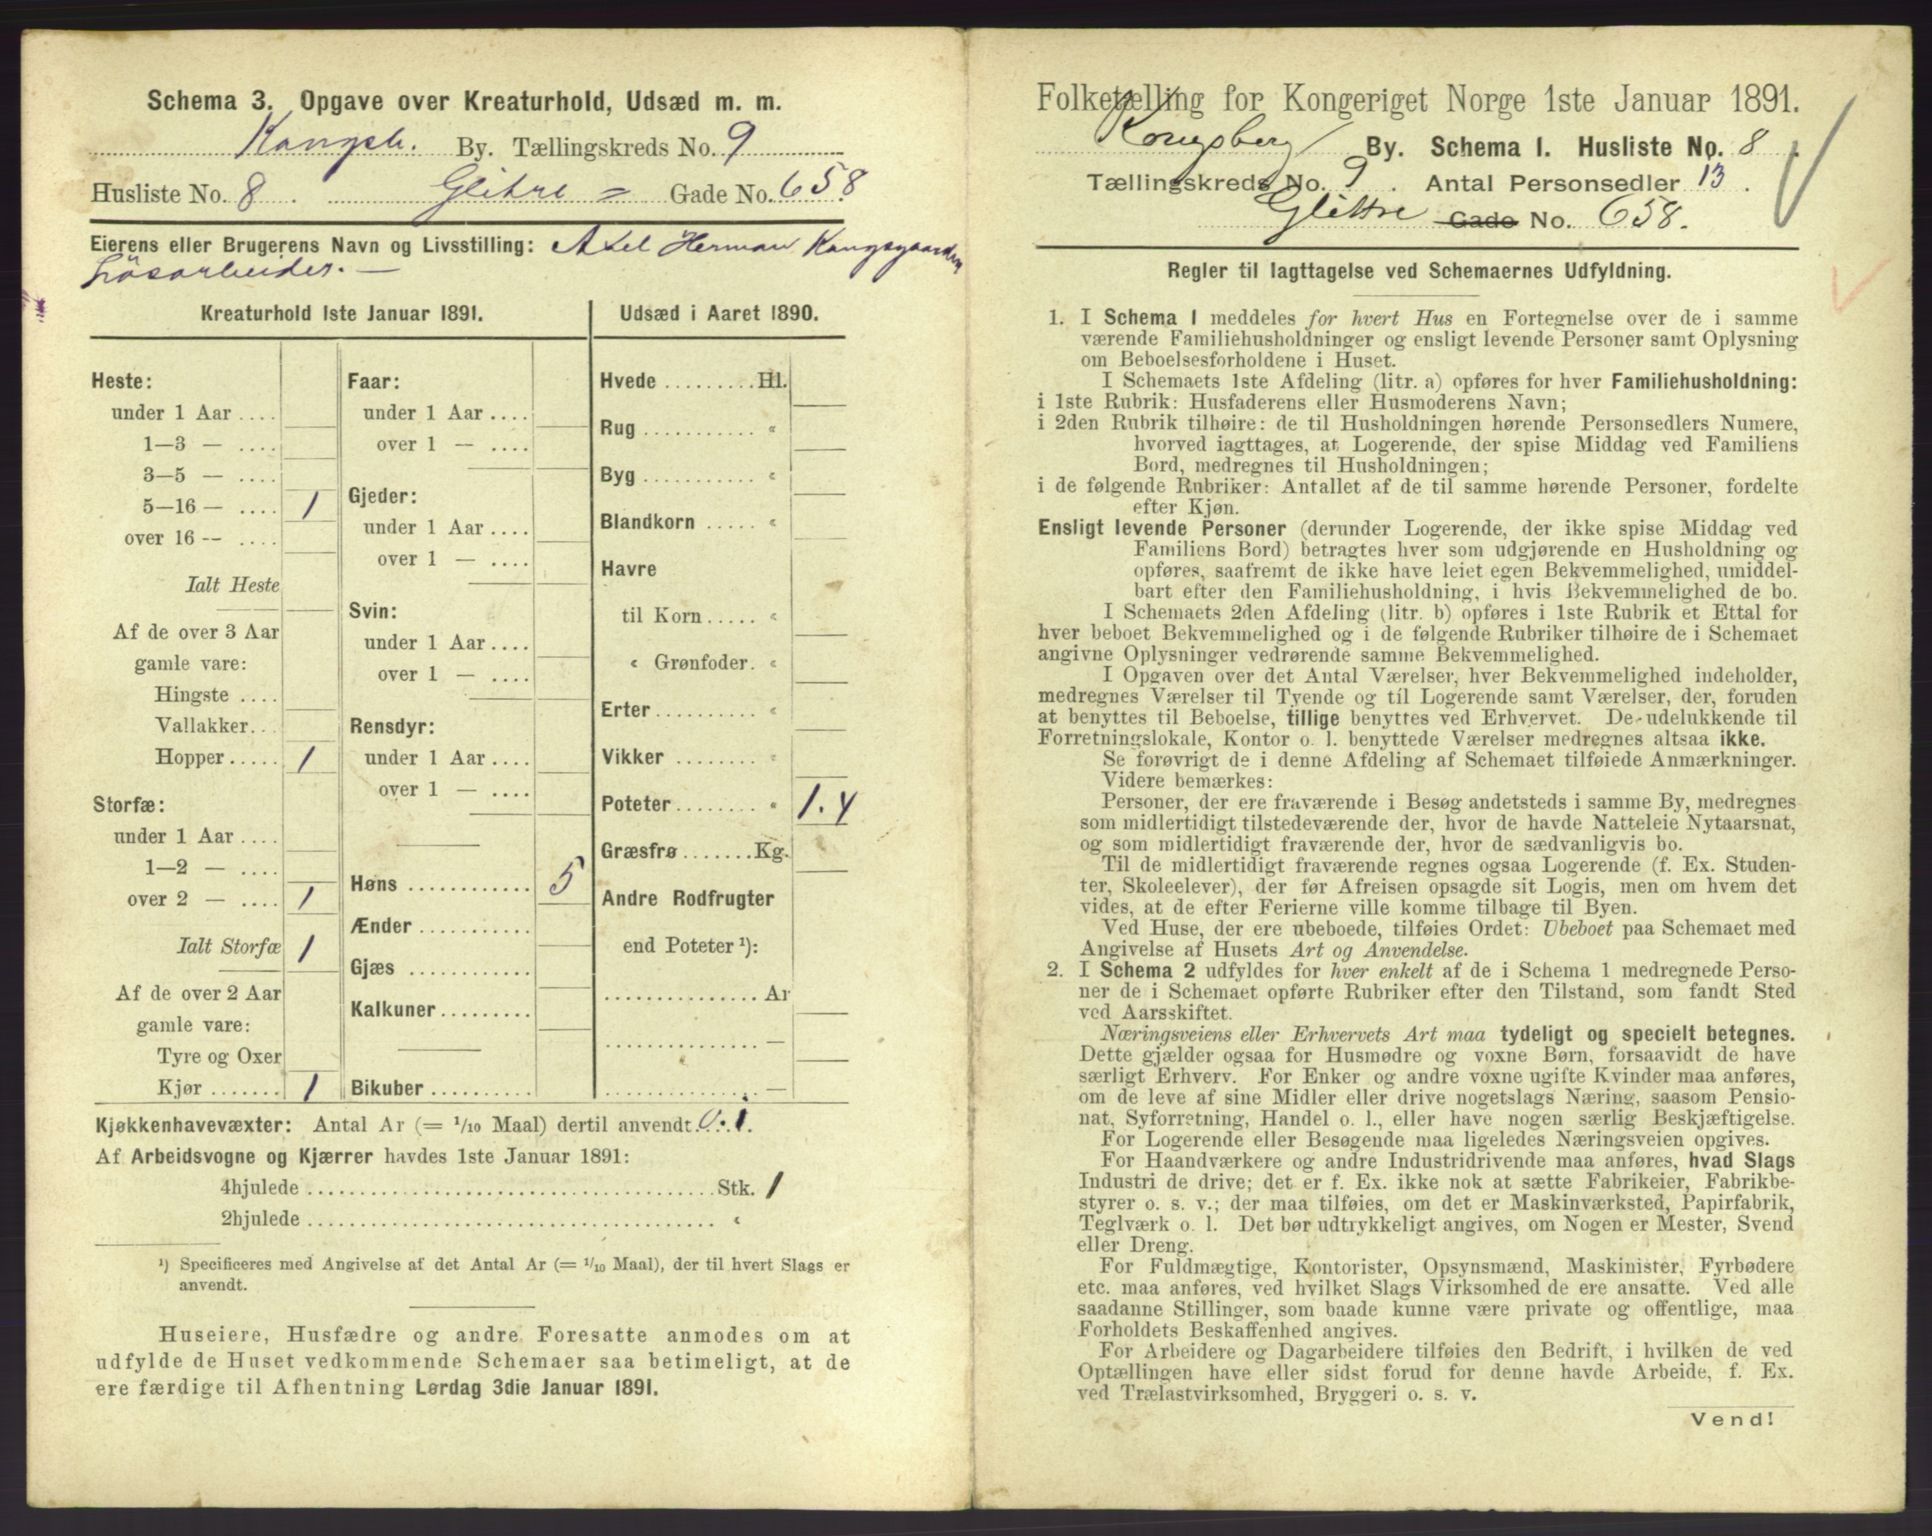 Schema 3. Opgave over Kreaturhold, Udsæd m. m.
Kongsb. By. Tællingskreds No. 9
Husliste No. 8 . Glitre = Gade No. 658.
Eierens eller Brugerens Navn og Livsstilling: Axel Herman Kongsgaarden
Løsarbeider. —
Kreaturhold 1ste Januar 1891.
Heste:
under 1 Aar ....
1—3 — ....
3—5 — ....
5—16 — .... 1
over 16 — ....
Ialt Heste
Af de over 3 Aar
gamle vare:
Hingste ....
Vallakker...
Hopper..... 1
Storfæ:
under 1 Aar ....
1—2 — ....
over 2 — .... 1
Ialt Storfæ 1
Af de over 2 Aar
gamle vare:
Tyre og Oxer
Kjør ....... 1
Faar:
under 1 Aar ....
over 1 — ....
Gjeder:
under 1 Aar ....
over 1 — ....
Svin:
under 1 Aar ....
over 1 — ....
Rensdyr:
under 1 Aar ....
over 1 — ....
Høns ............ 5
Ænder ...........
Gjæs ............
Kalkuner.........
Bikuber ..........
Udsæd i Aaret 1890.
Hvede .........Hl.
Rug ........... "
Byg ........... "
Blandkorn ..... "
Havre
til Korn..... "
" Grønfoder. "
Erter.......... "
Vikker ........ "
Poteter........ " 1.4
Græsfrø.......Kg.
Andre Rodfrugter
end Poteter ¹):
............... Ar
............... —
............... —
Kjøkkenhavevæxter: Antal Ar (= 1/10 Maal) dertil anvendt. 0.1.
Af Arbeidsvogne og Kjærrer havdes 1ste Januar 1891:
4hjulede ....................................Stk. 1
2hjulede .................................... "
¹) Specificeres med Angivelse af det Antal Ar (= 1/10 Maal), der til hvert Slags er
anvendt.
Huseiere, Husfædre og andre Foresatte anmodes om at
udfylde de Huset vedkommende Schemaer saa betimeligt, at de
ere færdige til Afhentning Lørdag 3die Januar 1891.
Folketælling for Kongeriget Norge 1ste Januar 1891.
Kongsberg By. Schema I. Husliste No. 8 .
Tællingskreds No. 9 . Antal Personsedler 13 .
Glittre Gade No. 658.
Regler til Iagttagelse ved Schemaernes Udfyldning.
1. I Schema 1 meddeles for hvert Hus en Fortegnelse over de i samme
værende Familiehusholdninger og ensligt levende Personer samt Oplysning
om Beboelsesforholdene i Huset.
I Schemaets 1ste Afdeling (litr. a) opføres for hver Familiehusholdning:
i 1ste Rubrik: Husfaderens eller Husmoderens Navn;
i 2den Rubrik tilhøire: de til Husholdningen hørende Personsedlers Numere,
hvorved iagttages, at Logerende, der spise Middag ved Familiens
Bord, medregnes til Husholdningen;
i de følgende Rubriker: Antallet af de til samme hørende Personer, fordelte
efter Kjøn.
Ensligt levende Personer (derunder Logerende, der ikke spise Middag ved
Familiens Bord) betragtes hver som udgjørende en Husholdning og
opføres, saafremt de ikke have leiet egen Bekvemmelighed, umiddel-
bart efter den Familiehusholdning, i hvis Bekvemmelighed de bo.
I Schemaets 2den Afdeling (litr. b) opføres i 1ste Rubrik et Ettal for
hver beboet Bekvemmelighed og i de følgende Rubriker tilhøire de i Schemaet
angivne Oplysninger vedrørende samme Bekvemmelighed.
I Opgaven over det Antal Værelser, hver Bekvemmelighed indeholder,
medregnes Værelser til Tyende og til Logerende samt Værelser, der, foruden
at benyttes til Beboelse, tillige benyttes ved Erhvervet. De udelukkende til
Forretningslokale, Kontor o. l. benyttede Værelser medregnes altsaa ikke.
Se forøvrigt de i denne Afdeling af Schemaet tilføiede Anmærkninger.
Videre bemærkes:
Personer, der ere fraværende i Besøg andetsteds i samme By, medregnes
som midlertidigt tilstedeværende der, hvor de havde Natteleie Nytaarsnat,
og som midlertidigt fraværende der, hvor de sædvanligvis bo.
Til de midlertidigt fraværende regnes ogsaa Logerende (f. Ex. Studen-
ter, Skoleelever), der før Afreisen opsagde sit Logis, men om hvem det
vides, at de efter Ferierne ville komme tilbage til Byen.
Ved Huse, der ere ubeboede, tilføies Ordet: Ubeboet paa Schemaet med
Angivelse af Husets Art og Anvendelse.
2. I Schema 2 udfyldes for hver enkelt af de i Schema 1 medregnede Perso-
ner de i Schemaet opførte Rubriker efter den Tilstand, som fandt Sted
ved Aarsskiftet.
Næringsveiens eller Erhvervets Art maa tydeligt og specielt betegnes.
Dette gjælder ogsaa for Husmødre og voxne Børn, forsaavidt de have
særligt Erhverv. For Enker og andre voxne ugifte Kvinder maa anføres,
om de leve af sine Midler eller drive nogetslags Næring, saasom Pensio-
nat, Syforretning, Handel o. l., eller have nogen særlig Beskjæftigelse.
For Logerende eller Besøgende maa ligeledes Næringsveien opgives.
For Haandværkere og andre Industridrivende maa anføres, hvad Slags
Industri de drive; det er f. Ex. ikke nok at sætte Fabrikeier, Fabrikbe-
styrer o. s. v.; der maa tilføies, om det er Maskinværksted, Papirfabrik,
Teglværk o. l. Det bør udtrykkeligt angives, om Nogen er Mester, Svend
eller Dreng.
For Fuldmægtige, Kontorister, Opsynsmænd, Maskinister, Fyrbødere
etc. maa anføres, ved hvilket Slags Virksomhed de ere ansatte. Ved alle
saadanne Stillinger, som baade kunne være private og offentlige, maa
Forholdets Beskaffenhed angives.
For Arbeidere og Dagarbeidere tilføies den Bedrift, i hvilken de ved
Optællingen have eller sidst forud for denne havde Arbeide, f. Ex.
ved Trælastvirksomhed, Bryggeri o. s. v.
Vend!